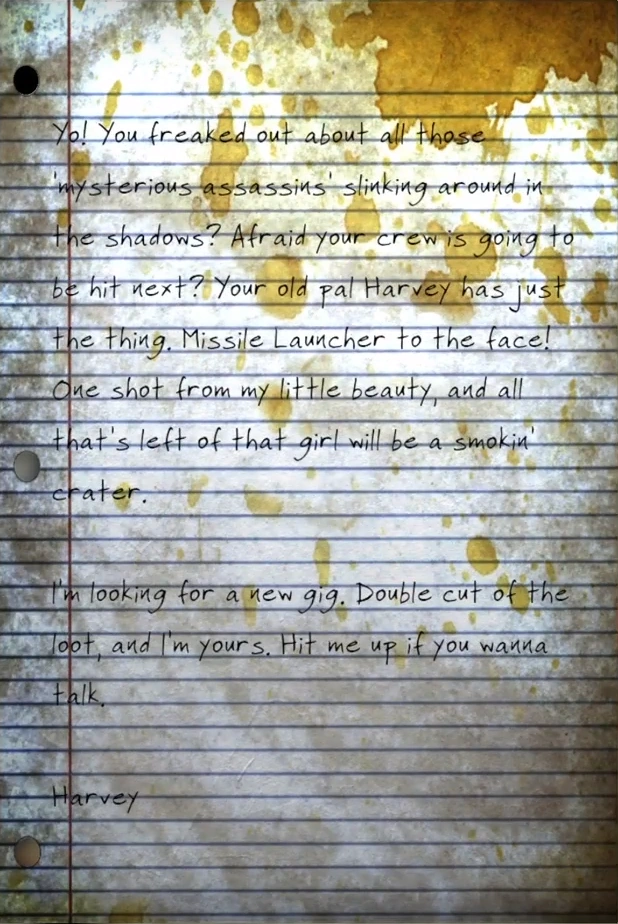 Yo! You freaked out about all those
'mysterious assassins' slinking around in
the shadows? Afraid your crew is going to
be hit next? Your old pal Harvey has just
the thing. Missile Launcher to the face!
One shot from my little beauty, and all
that's left of that girl will be a smokin'
crater.
I'm looking for a new gig. Double cut of the
loot, and I'm yours. Hit me up if you wanna
talk.
Harvey